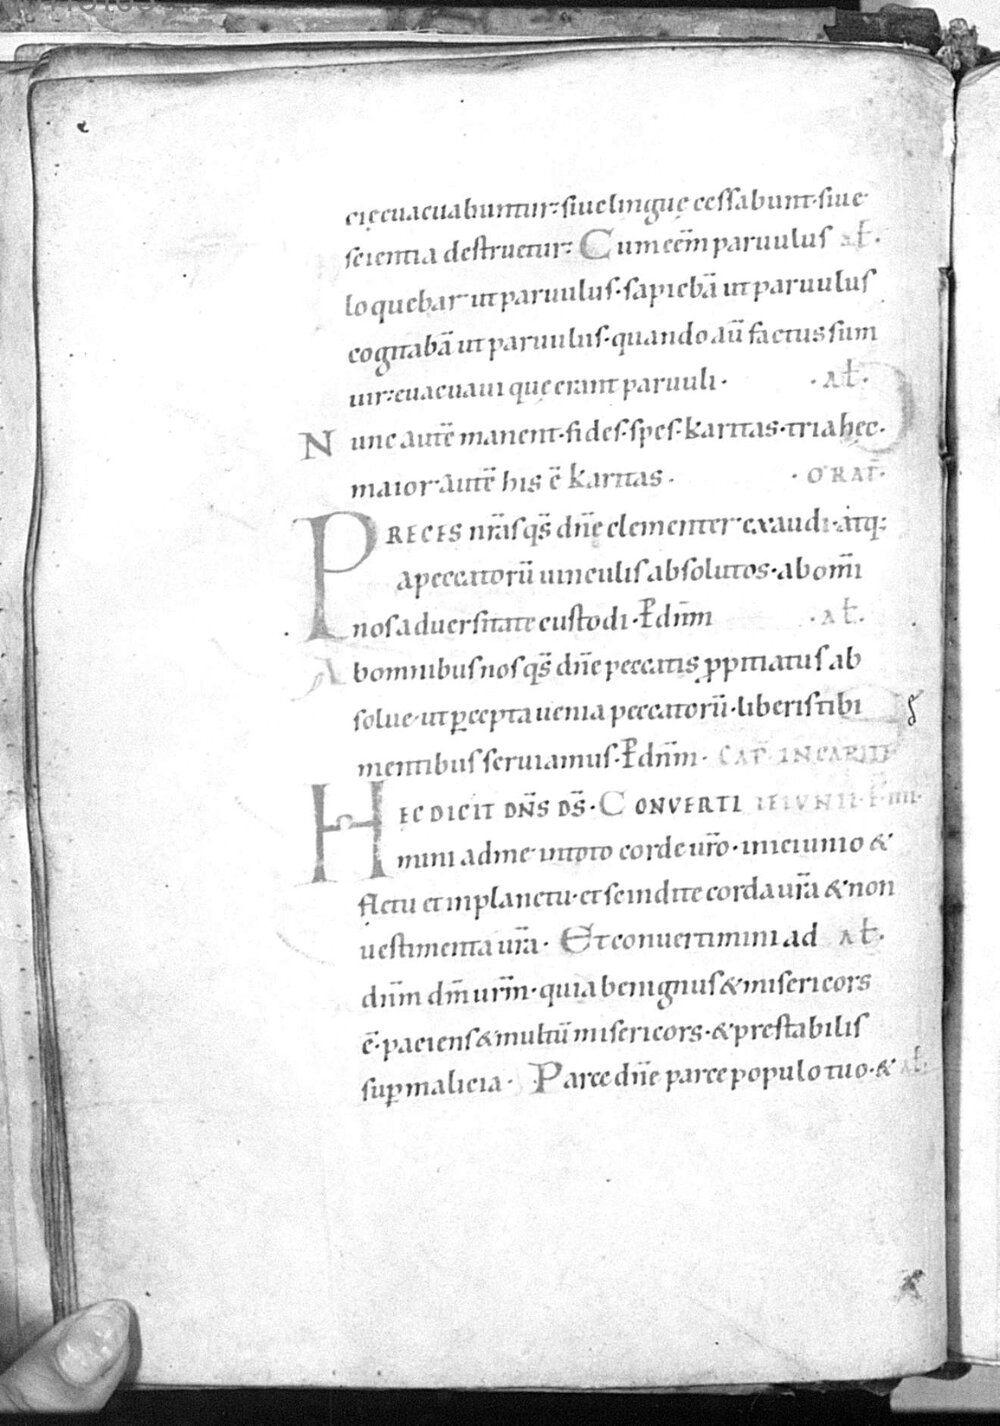 cię euacuabuntur: siue linguę cessabunt· siue
scientia destruetur: Cum eēm paruulus ał·
loquebar ut paruulus· sapiebā ut paruulus
cogitabā ut paruulus· quando aū factus sum
uir: euacuaui que erant paruuli· · Ał·
Nunc autē manent· fides· spes· karitas· tria hęc·
maior autē his ē karitas· · ORAT̄·
PRECES nr̄as qs̄ dn̄e clementer exaudi· atq:
a peccatorū uinculis absolutos· ab om̄i
nos aduersitate custodi· P̄ dn̄m · Ał·
Ab omnibus nos qs̄ dn̄e peccatis ꝓpitiatus ab
solue· ut ꝑcepta uenia peccatorū· liberis tibi
mentibus seruiamus· P̄ dn̄m· CAP̄ IN CAPITE
HEC DICIT DN̄S DS̄· CONVERTI IEIVNII· F̄ IIII·
mini ad me in toto corde ur̄o· in ieiunio &
fletu et in planctu· et scindite corda ur̄a & non
uestimenta ur̄a· Et conuertimini ad Ał·
dn̄m dm̄ urm̄· quia benignus & misericors
ē· paciens & multū misericors· & prestabilis
suꝑ malicia· Parce dn̄e parce populo tuo· & Ał·